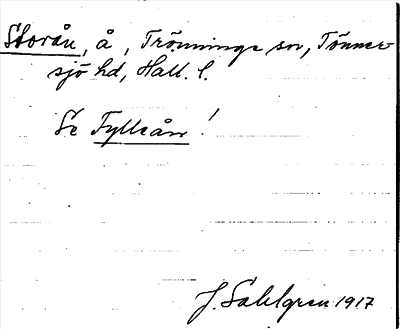 Storån, å, Trönninge sn, Tönner-
sjö hd, Hall. l.
Se Fylleån!
J. Sahlgren 1917